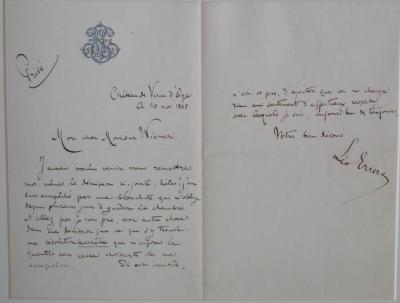 Privé
Château de Vivier d'Oye
Ce 10 nov. 1898.
Mon cher Monsieur Wiener,
J'aurais voulu venir vous remettre
moi-même la démission ci-jointe, hélas! j'en
suis empêché par une bronchite qui m'oblige
depuis plusieurs jours à garder la chambre.
N'allez pas, je vous prie, voir autre chose
dans ma démission que ce qui s'y trouve:
une résolution que m'impose la
quantité sans cesse croissante de mes
occupations.
n'est-ce pas, d'ajouter que ça ne change
rien aux sentiments d'affectueux respect
avec lesquels je suis, aujourd'hui et toujours,
Votre bien dévoué
Léo Errera